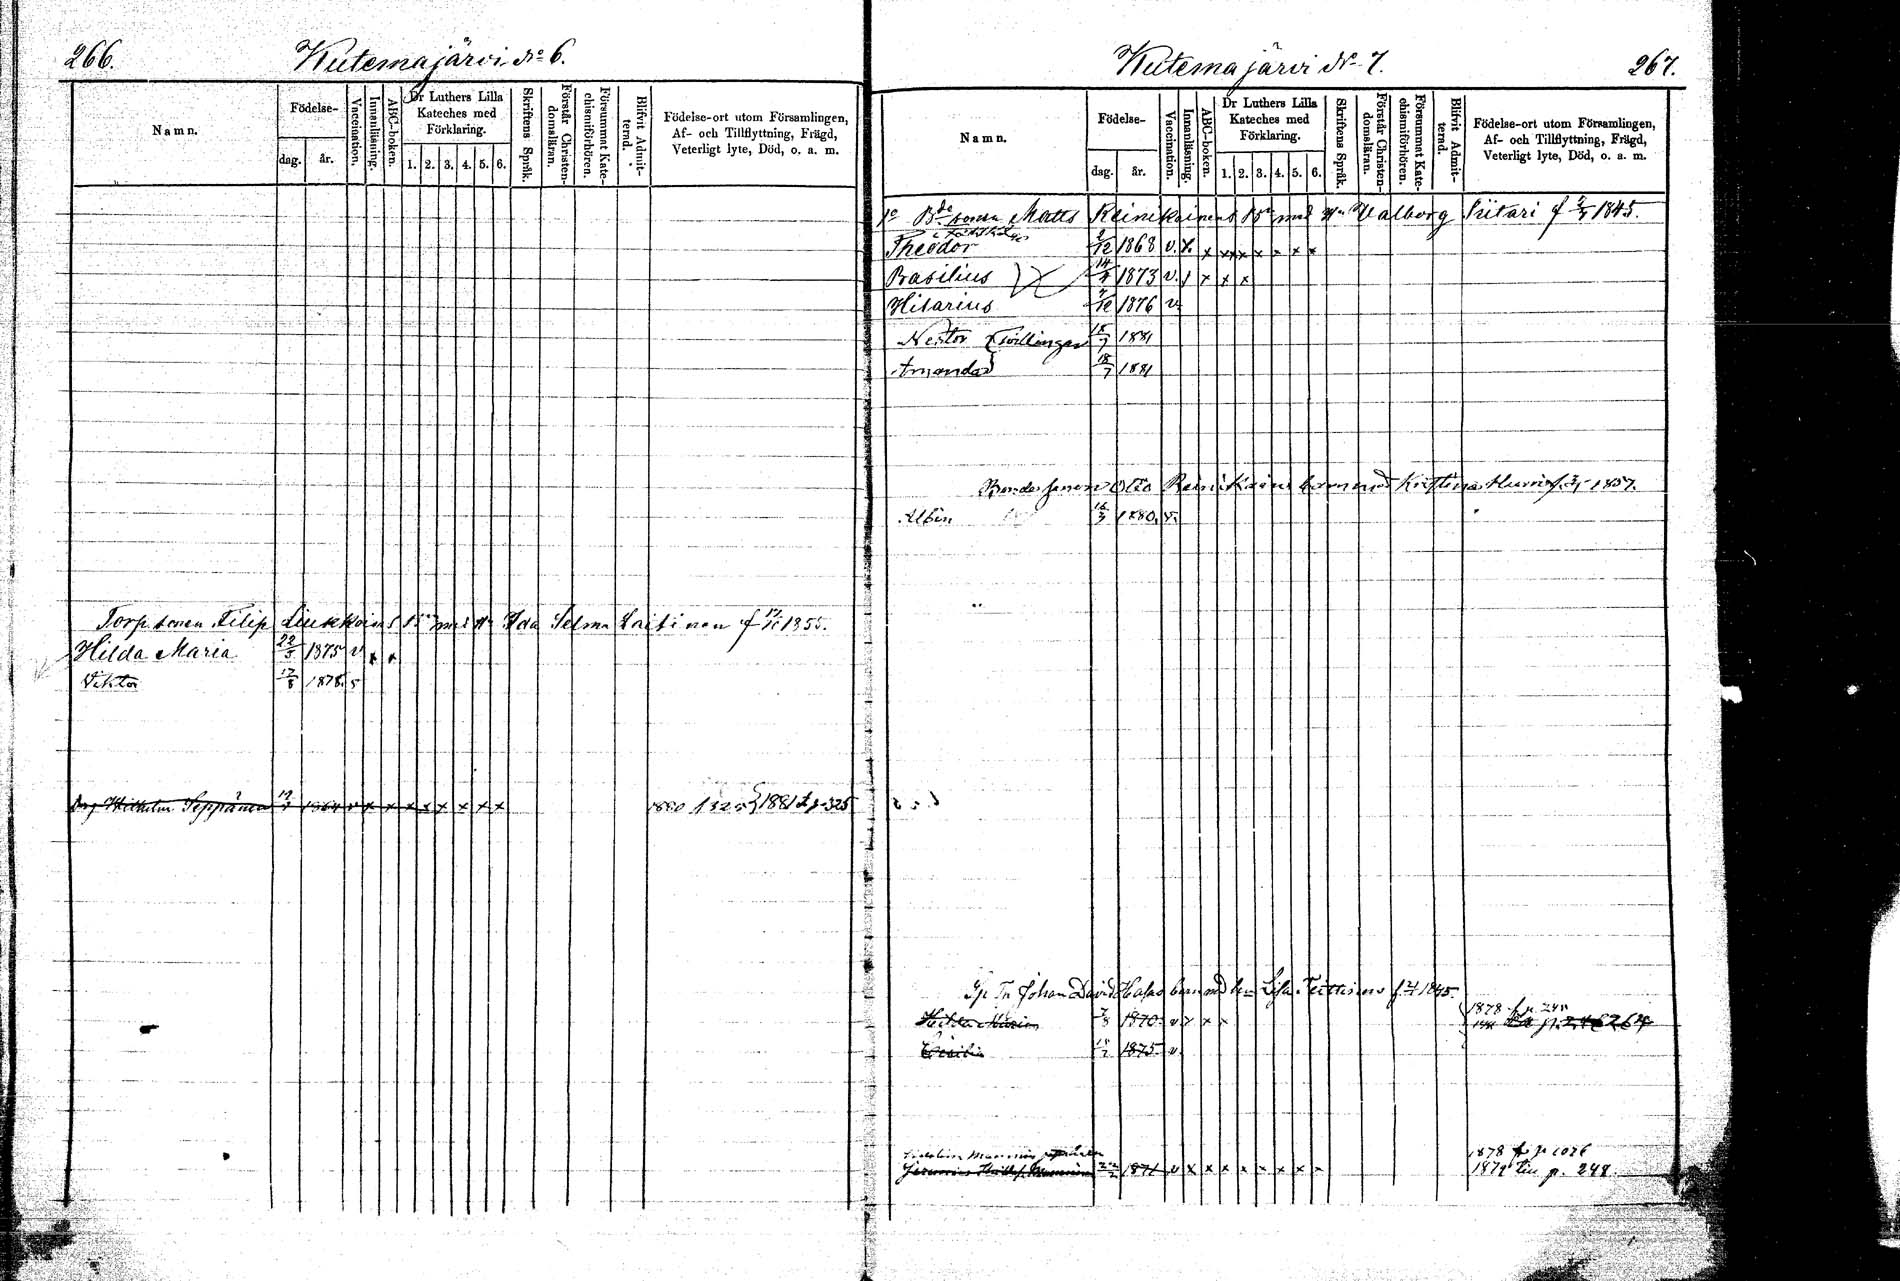 266.
Wutemajärvi No 6.
Namn.
Födelse-
dag.
år.
Vaccination.
Innanläsning.
ABC-boken.
Dr Luthers Lilla
Kateches med
Förklaring.
1. 2. 3. 4. 5. 6.
Skriftens Språk.
Förstår Christen-
domsläran.
Försummat Kate-
chismiförhören.
Blifvit Admit-
terad.
Födelse-ort utom Församlingen,
Af- och Tillflyttning, Frägd,
Veterligt lyte, Död, o. a. m.
Torp sonen Filip Liukkoin med Ida Selma Laitinen f 1855.
Hilda Maria 22/5 1875 v x x
Viktor 17/8 1878
Wilhelm Seppänen 1864 v x x x x x x x x
1880 1325 1881 p 325
Wutemajärvi No 7.
267.
Namn.
Födelse-
dag.
år.
Vaccination.
Innanläsning.
ABC-boken.
Dr Luthers Lilla
Kateches med
Förklaring.
1. 2. 3. 4. 5. 6.
Skriftens Språk.
Förstår Christen-
domsläran.
Försummat Kate-
chismiförhören.
Blifvit Admit-
terad.
Födelse-ort utom Församlingen,
Af- och Tillflyttning, Frägd,
Veterligt lyte, Död, o. a. m.
1o Bde sonen Matts Reinikainens Bn med Hu Valborg Siitari f 1845.
Theodor 2/12 1868 v. x x x x x x x x x
Basilius 14/4 1873 v. x x x
Hilarius 1876 v.
Nestor Tvillingar 18/7 1881
Amanda 18/7 1881
Bondesonen Otto Reinikains barn med Kristina Hurri f. 1857.
Albin 16/3 1880. v.
Johan David Halas barn med Lisa Teittinen f. 1845.
Hilda Maria 7/8 1870. v x x x
1878 f p. 248
264
Cecilia 1875 v.
Manninen
1871 v x x x x x x x x
1878 fr p 1026
1879 till p. 248.